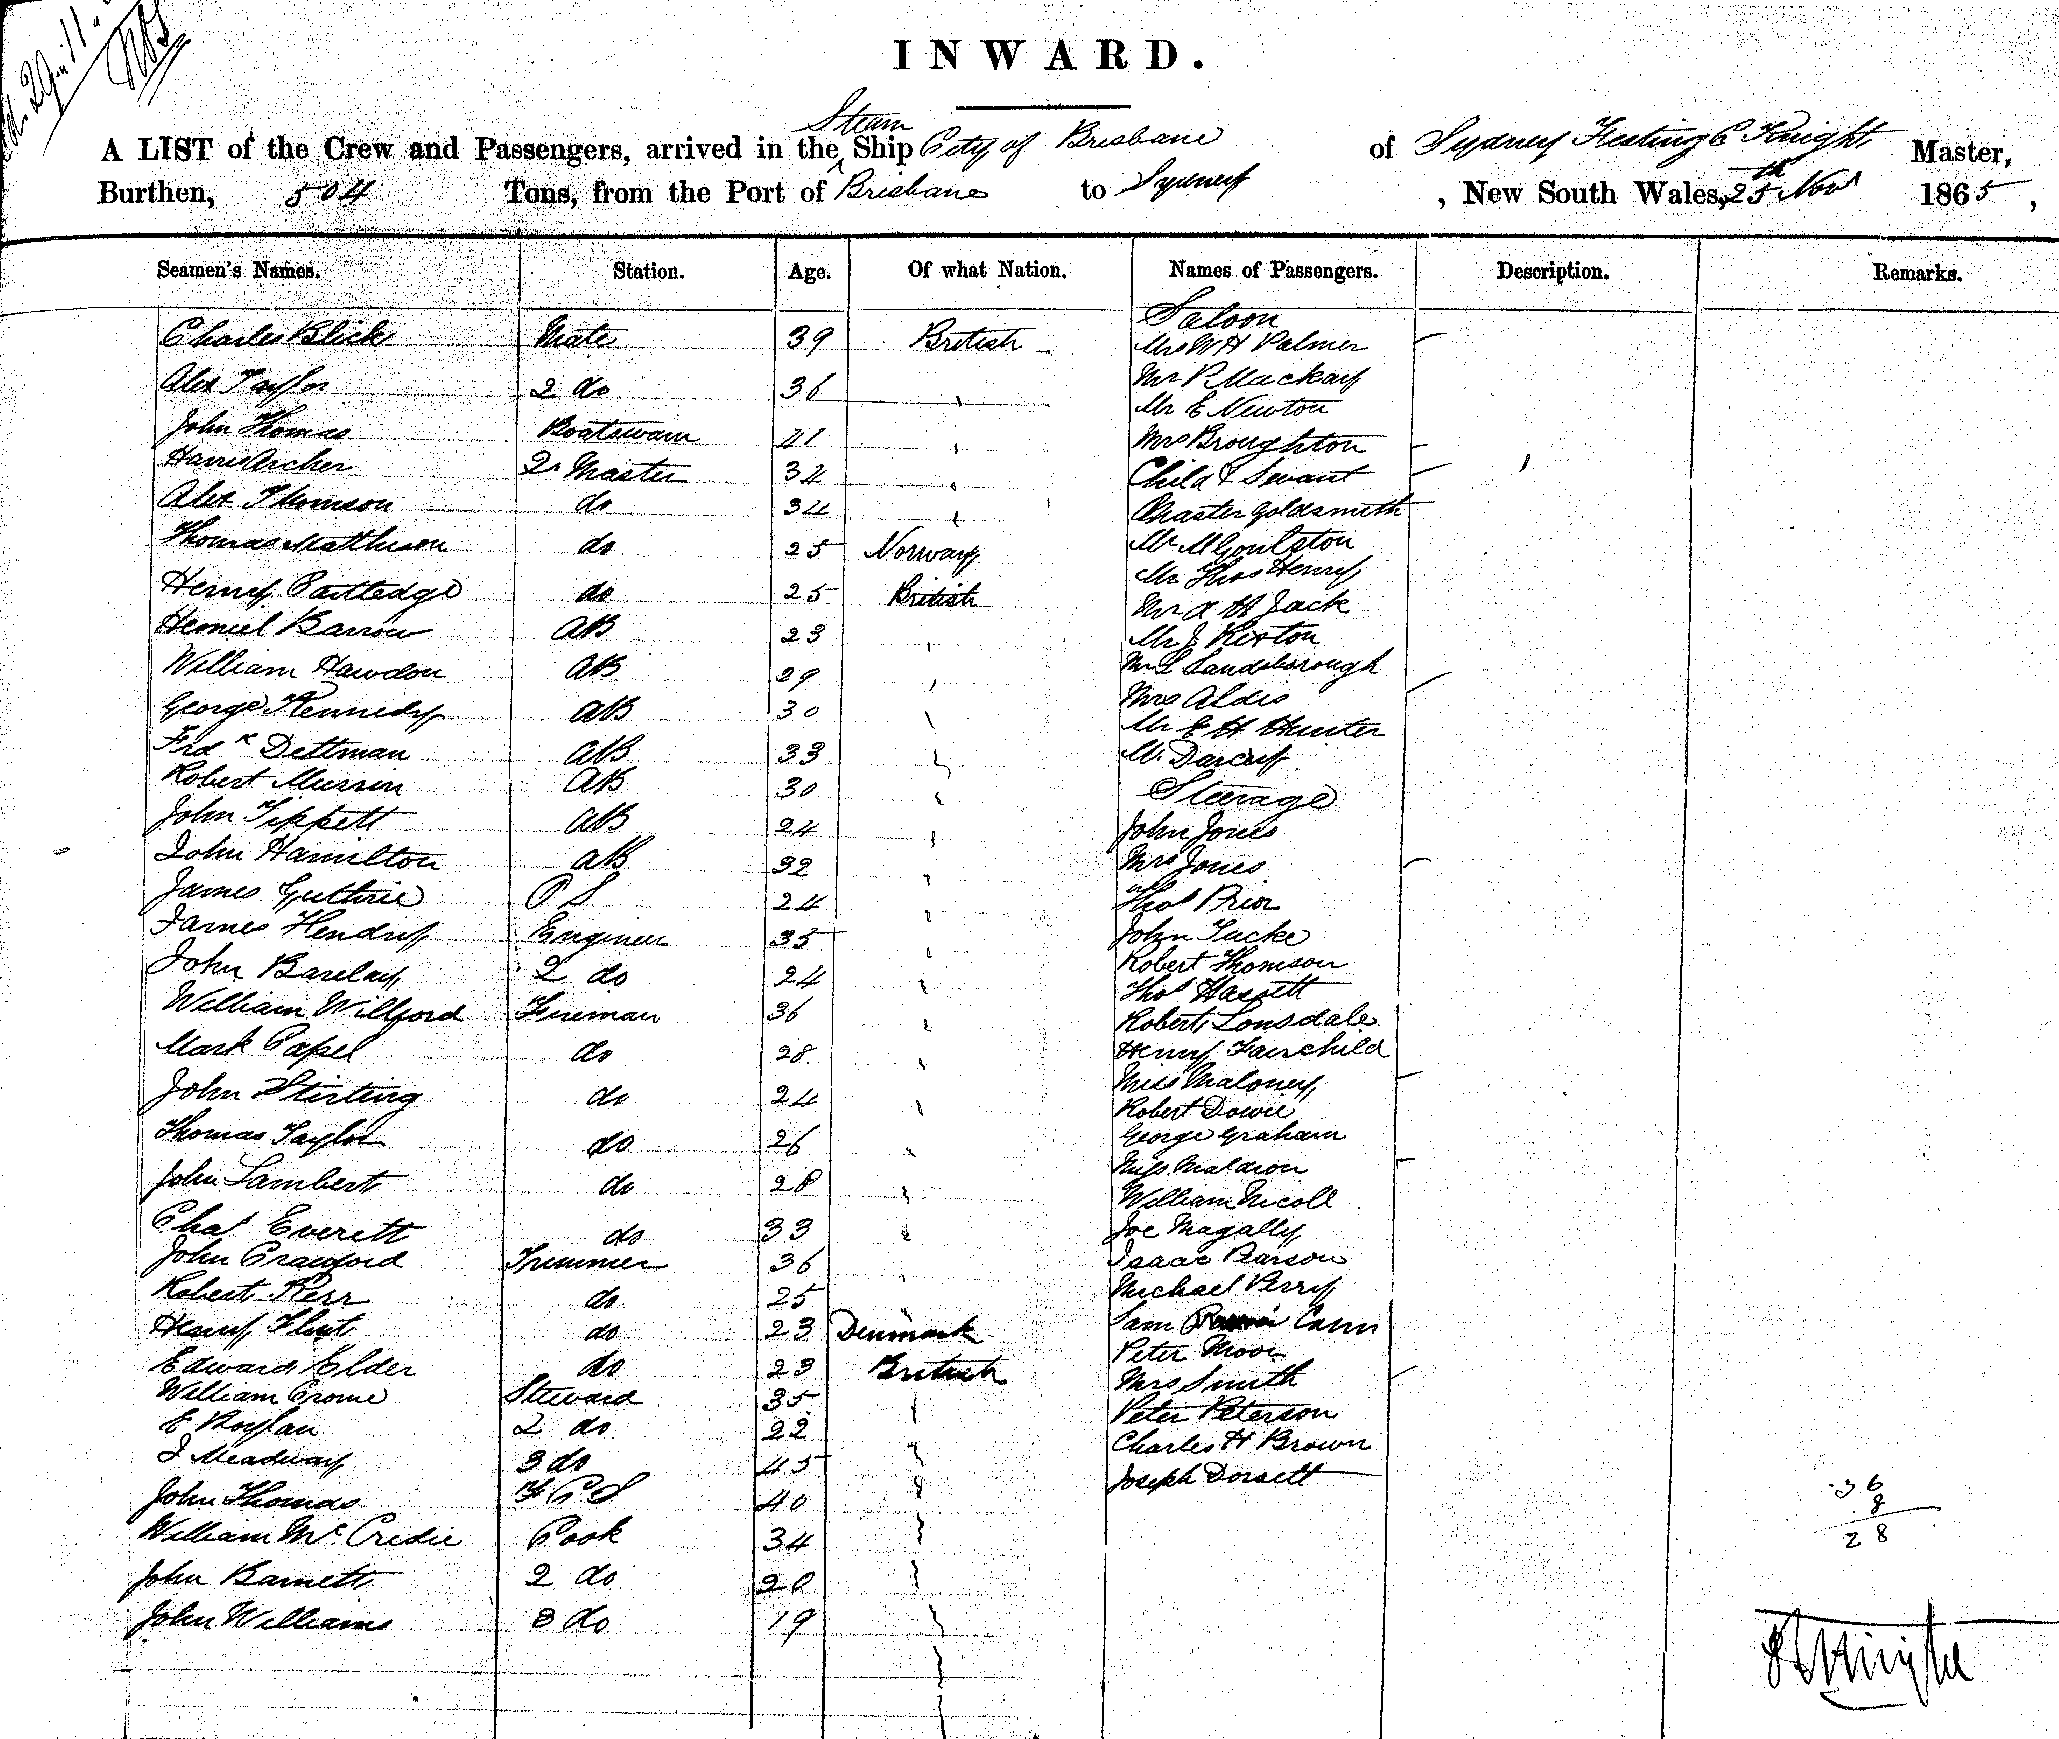 INWARD.
A LIST of the Crew and Passengers, arrived in the Steam Ship City of Brisbane of Sydney Knight Master,
Burthen, 504 Tons, from the Port of Brisbane to Sydney , New South Wales, 25th Novr 1865 ,
Seamen's Names. Station. Age. Of what Nation. Names of Passengers. Description. Remarks.
Saloon
Charles Blick Mate 39 British Mrs W H Palmer
Alex Taylor 2 do 36 Mr P Mackay
Mr E Newton
John Thomas Boatswain 41 Mrs Broughton
Archer Qr Master 32 Child & Servant
Alex Thomson do 34 Goldsmith
Thomas Mathieson do 25 Norway Mr M Goulston
Mr Thos Henry
Henry Partledge do 25 British Mr A H Jack
Barrow AB 23 Mr J Kirton
William Hawdon AB 29 Mr L Landsborough
George Kennedy AB 30 Mrs Aldis
Mr E H Hunter
Fredk Dettman AB 33 Mr Darcy
Robert AB 30 Steerage
John Tippett AB 24 John Jones
John Hamilton AB 32 Mrs Jones
James Guthrie O S 24 Thos Prior
James Hendry Engineer 35 John Tucke
John Barclay 2 do 24 Robert Thomson
Thos Hassett
William Willford Fireman 36 Robert Lonsdale
Mark Capel do 28 Henry Fairchild
Miss Maloney
John Stirling do 24 Robert Dowie
Thomas Taylor do 26 George Graham
Miss
John Lambert do 28 William Nicoll
Chas Everett do 33 Joe Magally
John Crawford Trimmer 36 Isaac Pearson
Robert Kerr do 25 Michael Perry
Henry Flint do 23 Denmark Sam
Peter Moore
Edward Elder do 23 British Mrs Smith
William Crome Steward 35 Peter Peterson
E Boylan 2 do 22 Charles H Brown
J Meadway 3 do 45 Joseph Dorsett
John Thomas 40
William McCredie Cook 34
John Barnett 2 do 20
John Williams 3 do 19
36
8
28